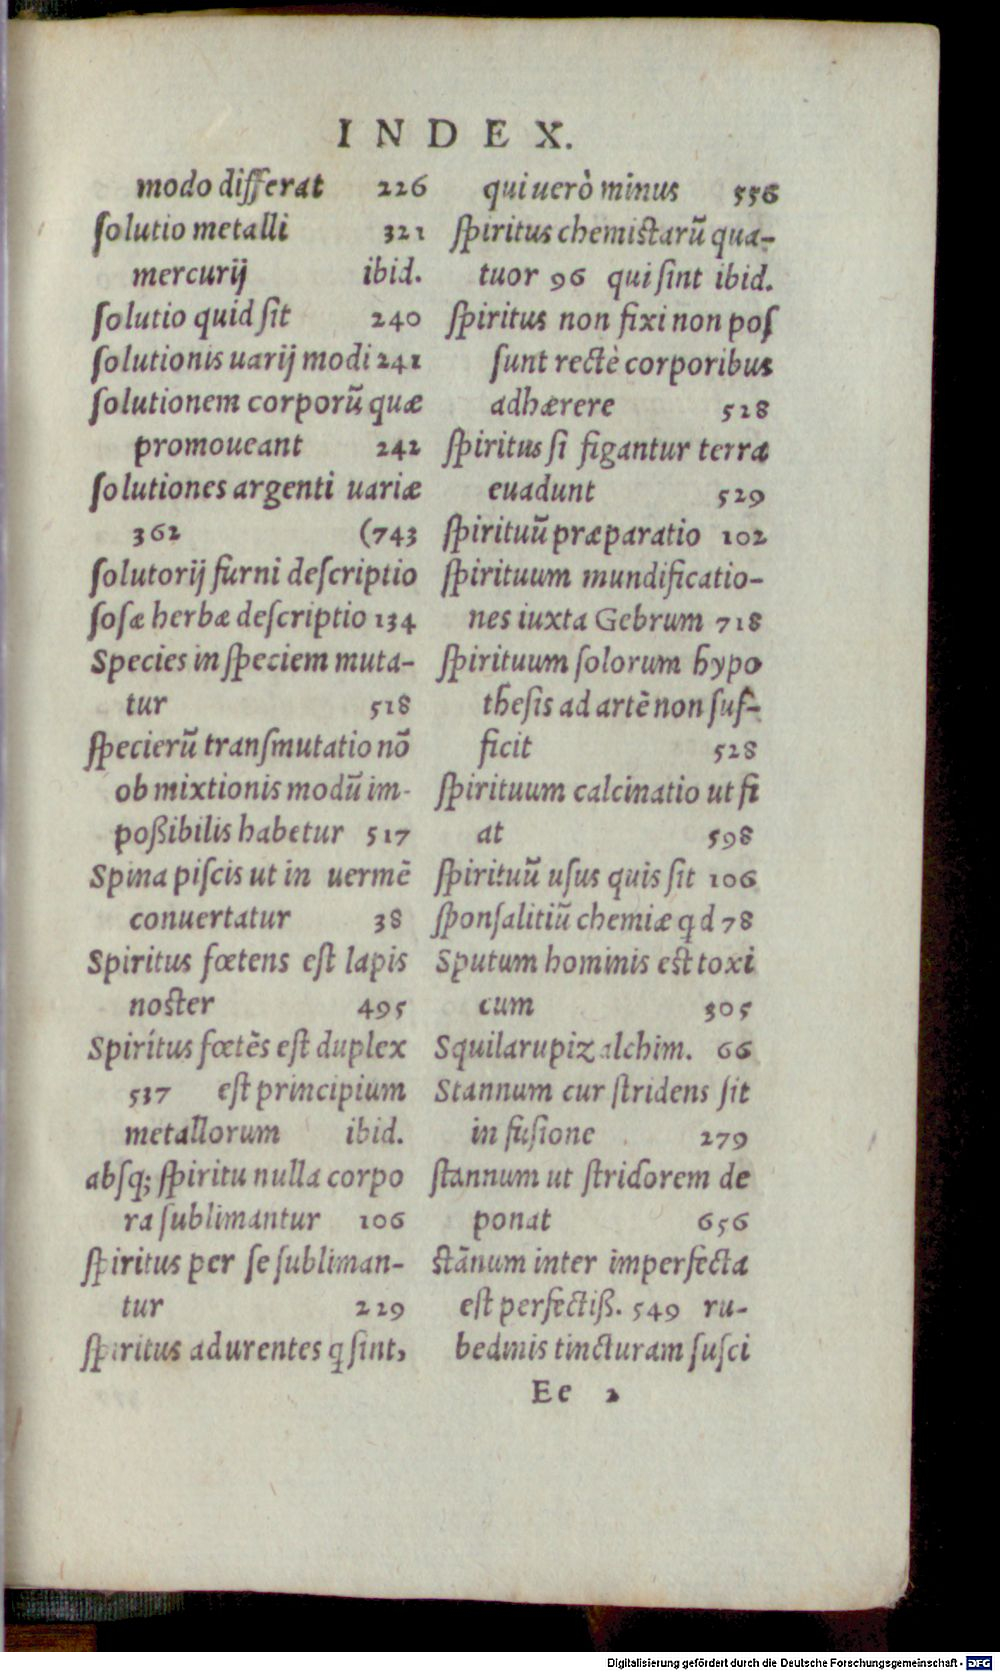 INDEX.
modo differat 226
ſolutio metalli 321
mercurij ibid.
ſolutio quid ſit 240
ſolutionis uarij modi 241
ſolutionem corporũ quæ
promoueant 242
ſolutiones argenti uariæ
362 (743
ſolutorij furni deſcriptio
ſoſæ herbæ deſcriptio 134
Species in ſpeciem muta-
tur 518
ſpecierũ tranſmutatio nõ
ob mixtionis modũ im-
poßibilis habetur 517
Spina piſcis ut in uermẽ
conuertatur 38
Spiritus fœtens eſt lapis
noſter 495
Spiritus fœtẽs eſt duplex
537 eſt principium
metallorum ibid.
abſq; ſpiritu nulla corpo
ra ſublimantur 106
ſpiritus per ſe ſubliman-
tur 229
ſpiritus adurentes q̃ ſint,
qui uerò minus 556
ſpiritus chemiſtarũ qua-
tuor 96 qui ſint ibid.
ſpiritus non fixi non poſ
ſunt rectè corporibus
adhærere 528
ſpiritus ſi figantur terræ
euadunt 529
ſpirituũ præparatio 102
ſpirituum mundificatio-
nes iuxta Gebrum 718
ſpirituum ſolorum hypo
theſis ad artẽ non ſuf-
ficit 528
ſpirituum calcinatio ut fi
at 598
ſpirituũ uſus quis ſit 106
ſponſalitiũ chemiæ q̃d 78
Sputum hominis eſt toxi
cum 305
Squilarupiz alchim. 66
Stannum cur ſtridens ſit
in fuſione 279
ſtannum ut ſtridorem de
ponat 656
ſtãnum inter imperfecta
eſt perfectiß. 549 ru-
bedinis tincturam ſuſci
Ee 2
Digitalisierung gefördert durch die Deutsche Forschungsgemeinschaft - DFG